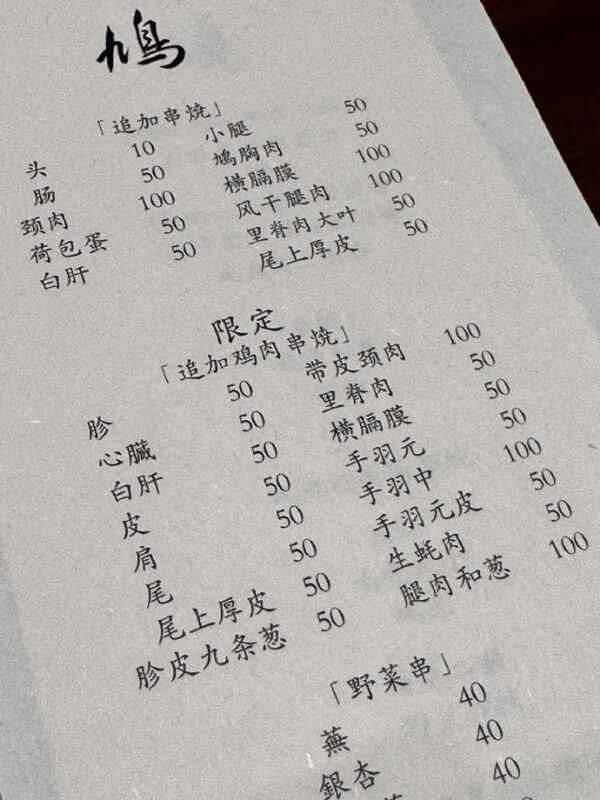 鳩
「追加串烧」
头 10 小腿 50
肠 50 鳩胸肉 50
颈肉 100 横膈膜 100
荷包蛋 50 风干腿肉 100
白肝 50 里脊肉大叶 50
尾上厚皮 50
限定
「追加鸡肉串烧」
胗 50 带皮颈肉 100
心臓 50 里脊肉 50
白肝 50 横膈膜 50
皮 50 手羽元 50
肩 50 手羽中 100
尾 50 手羽元皮 50
尾上厚皮 50 生蚝肉 50
胗皮九条葱 50 腿肉和葱 100
「野菜串」
蕪 40
銀杏 40
40